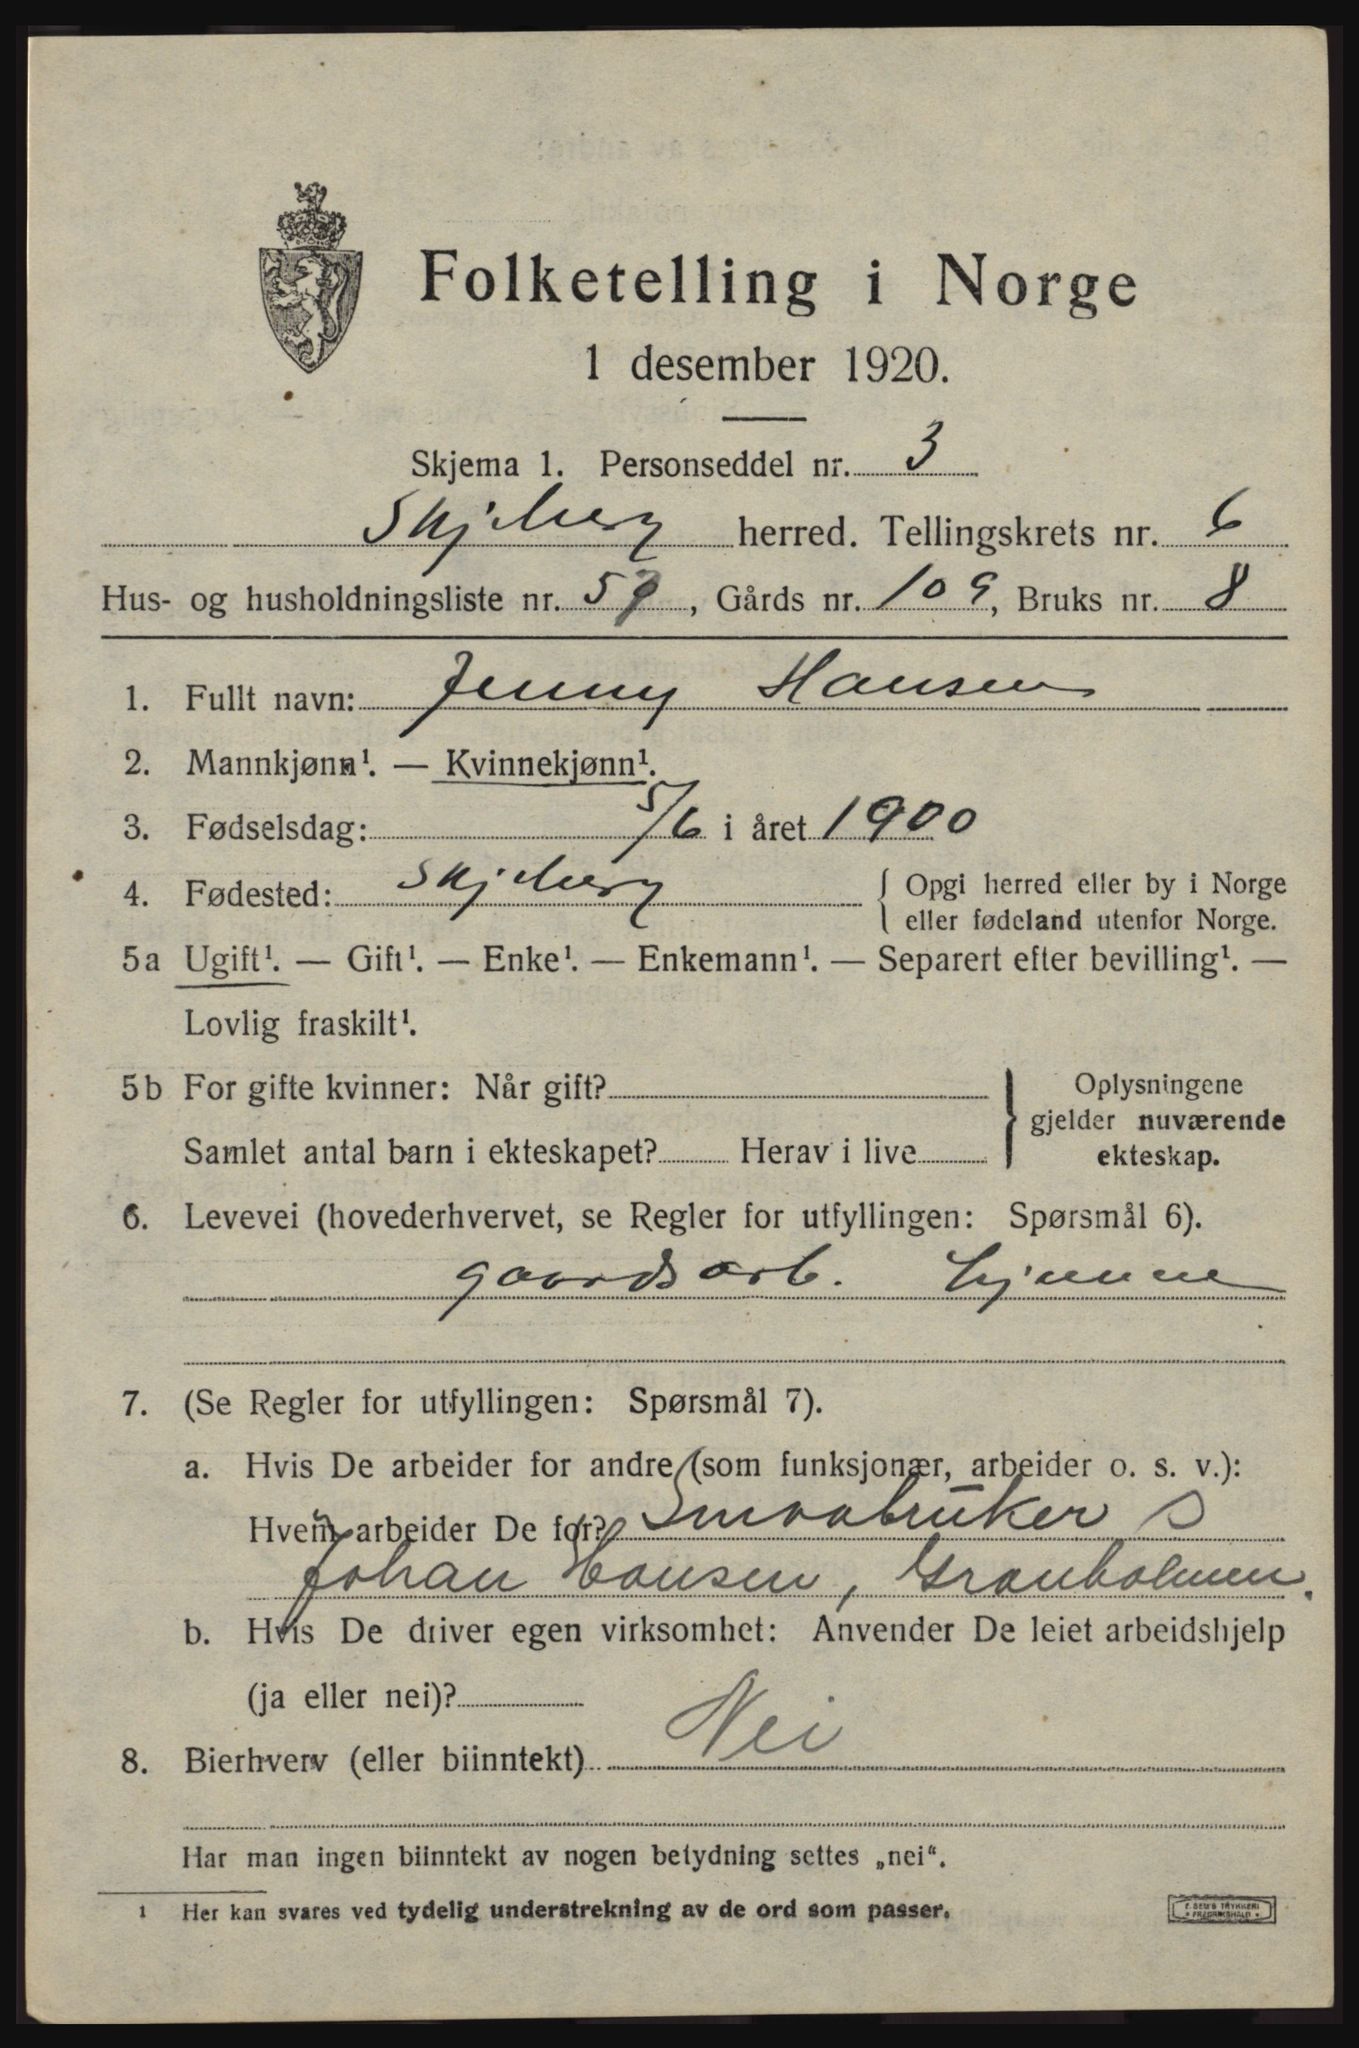 Folketelling i Norge
1 desember 1920.
Skjema 1. Personseddel nr. 3
Skjeberg herred. Tellingskrets nr. 6
Hus- og husholdningsliste nr. , Gårds nr. 109, Bruks nr. 8
1. Fullt navn: Jenny Hansen
2. Mannkjønn¹. — Kvinnekjønn¹.
3. Fødselsdag: 5/6 i året 1900
4. Fødested: Skjeberg { Opgi herred eller by i Norge
eller fødeland utenfor Norge.
5a Ugift¹. — Gift¹. — Enke¹. — Enkemann¹. — Separert efter bevilling¹. —
Lovlig fraskilt¹.
5b For gifte kvinner: Når gift? } Oplysningene
gjelder nuværende
Samlet antal barn i ekteskapet? Herav i live ekteskap.
6. Levevei (hovederhvervet, se Regler for utfyllingen: Spørsmål 6).
gaardsarb. hjemme
7. (Se Regler for utfyllingen: Spørsmål 7).
a. Hvis De arbeider for andre (som funksjonær, arbeider o. s. v.):
Hvem arbeider De for? Smaabruker
Johan Hansen, Granholmen.
b. Hvis De driver egen virksomhet: Anvender De leiet arbeidshjelp
(ja eller nei)?
8. Bierhverv (eller biinntekt) Nei
Har man ingen biinntekt av nogen betydning settes „nei“.
1 Her kan svares ved tydelig understrekning av de ord som passer.
E. SEM'S TRYKKERI
FREDRIKSHALD